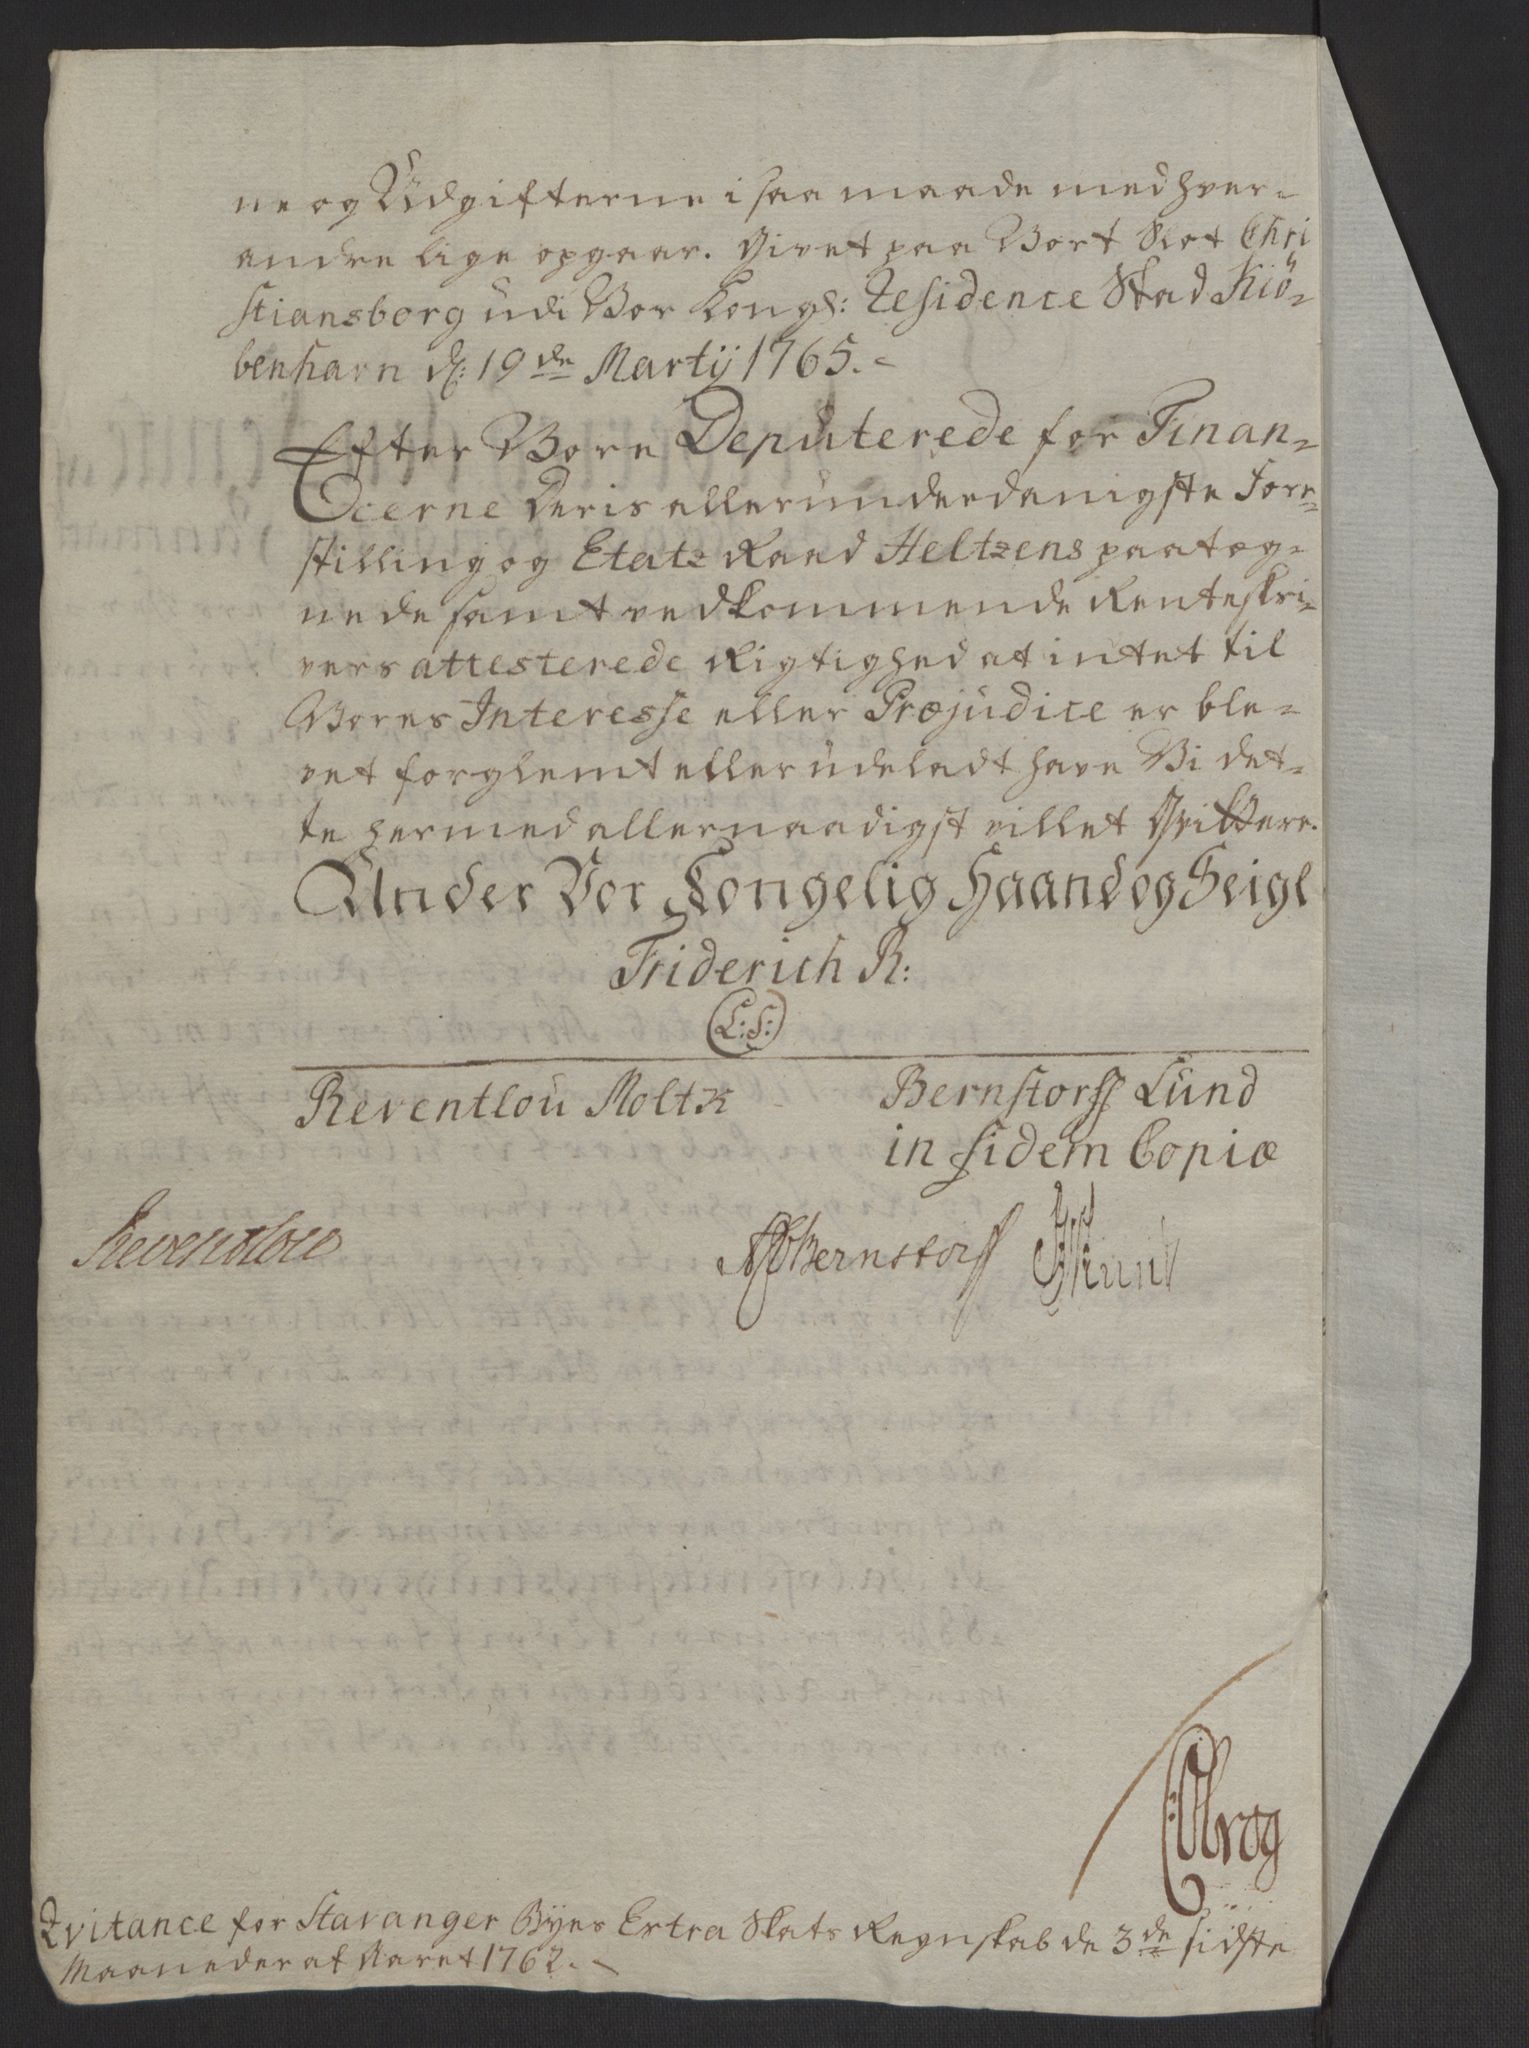 ne og Udgifterne i saa maade med hver-
andre lige opgaar. Givet paa Vort Slot Chri
stiansborg udi Vor Kongl: Residence Stad Kiö-
benhavn d: 19de Martÿ 1765.
Efter Vore Deputerede for Finan-
cerne Deris allerunderdanigste Fore-
stilling og Etatz Raad Heltzens paateg-
nede samt vedkommende Renteskri-
vers attesterede Rigtighed at intet til
Vores Interesse eller Præjudice er ble-
vet forglemt eller udeladt have Vi det-
te hermed allernaadigst villet Qvittere.
Under Vor Kongelig Haand og Seigl
Friderich R:
L:S:
Reventlou Moltk
Bernstorff Lund
in fidem Copiæ
Reventlou
Bernstorff
Qvitance for Stavanger Byes Extra Skats Regnskab de 3de sidste
Maaneder af Aaret 1762.